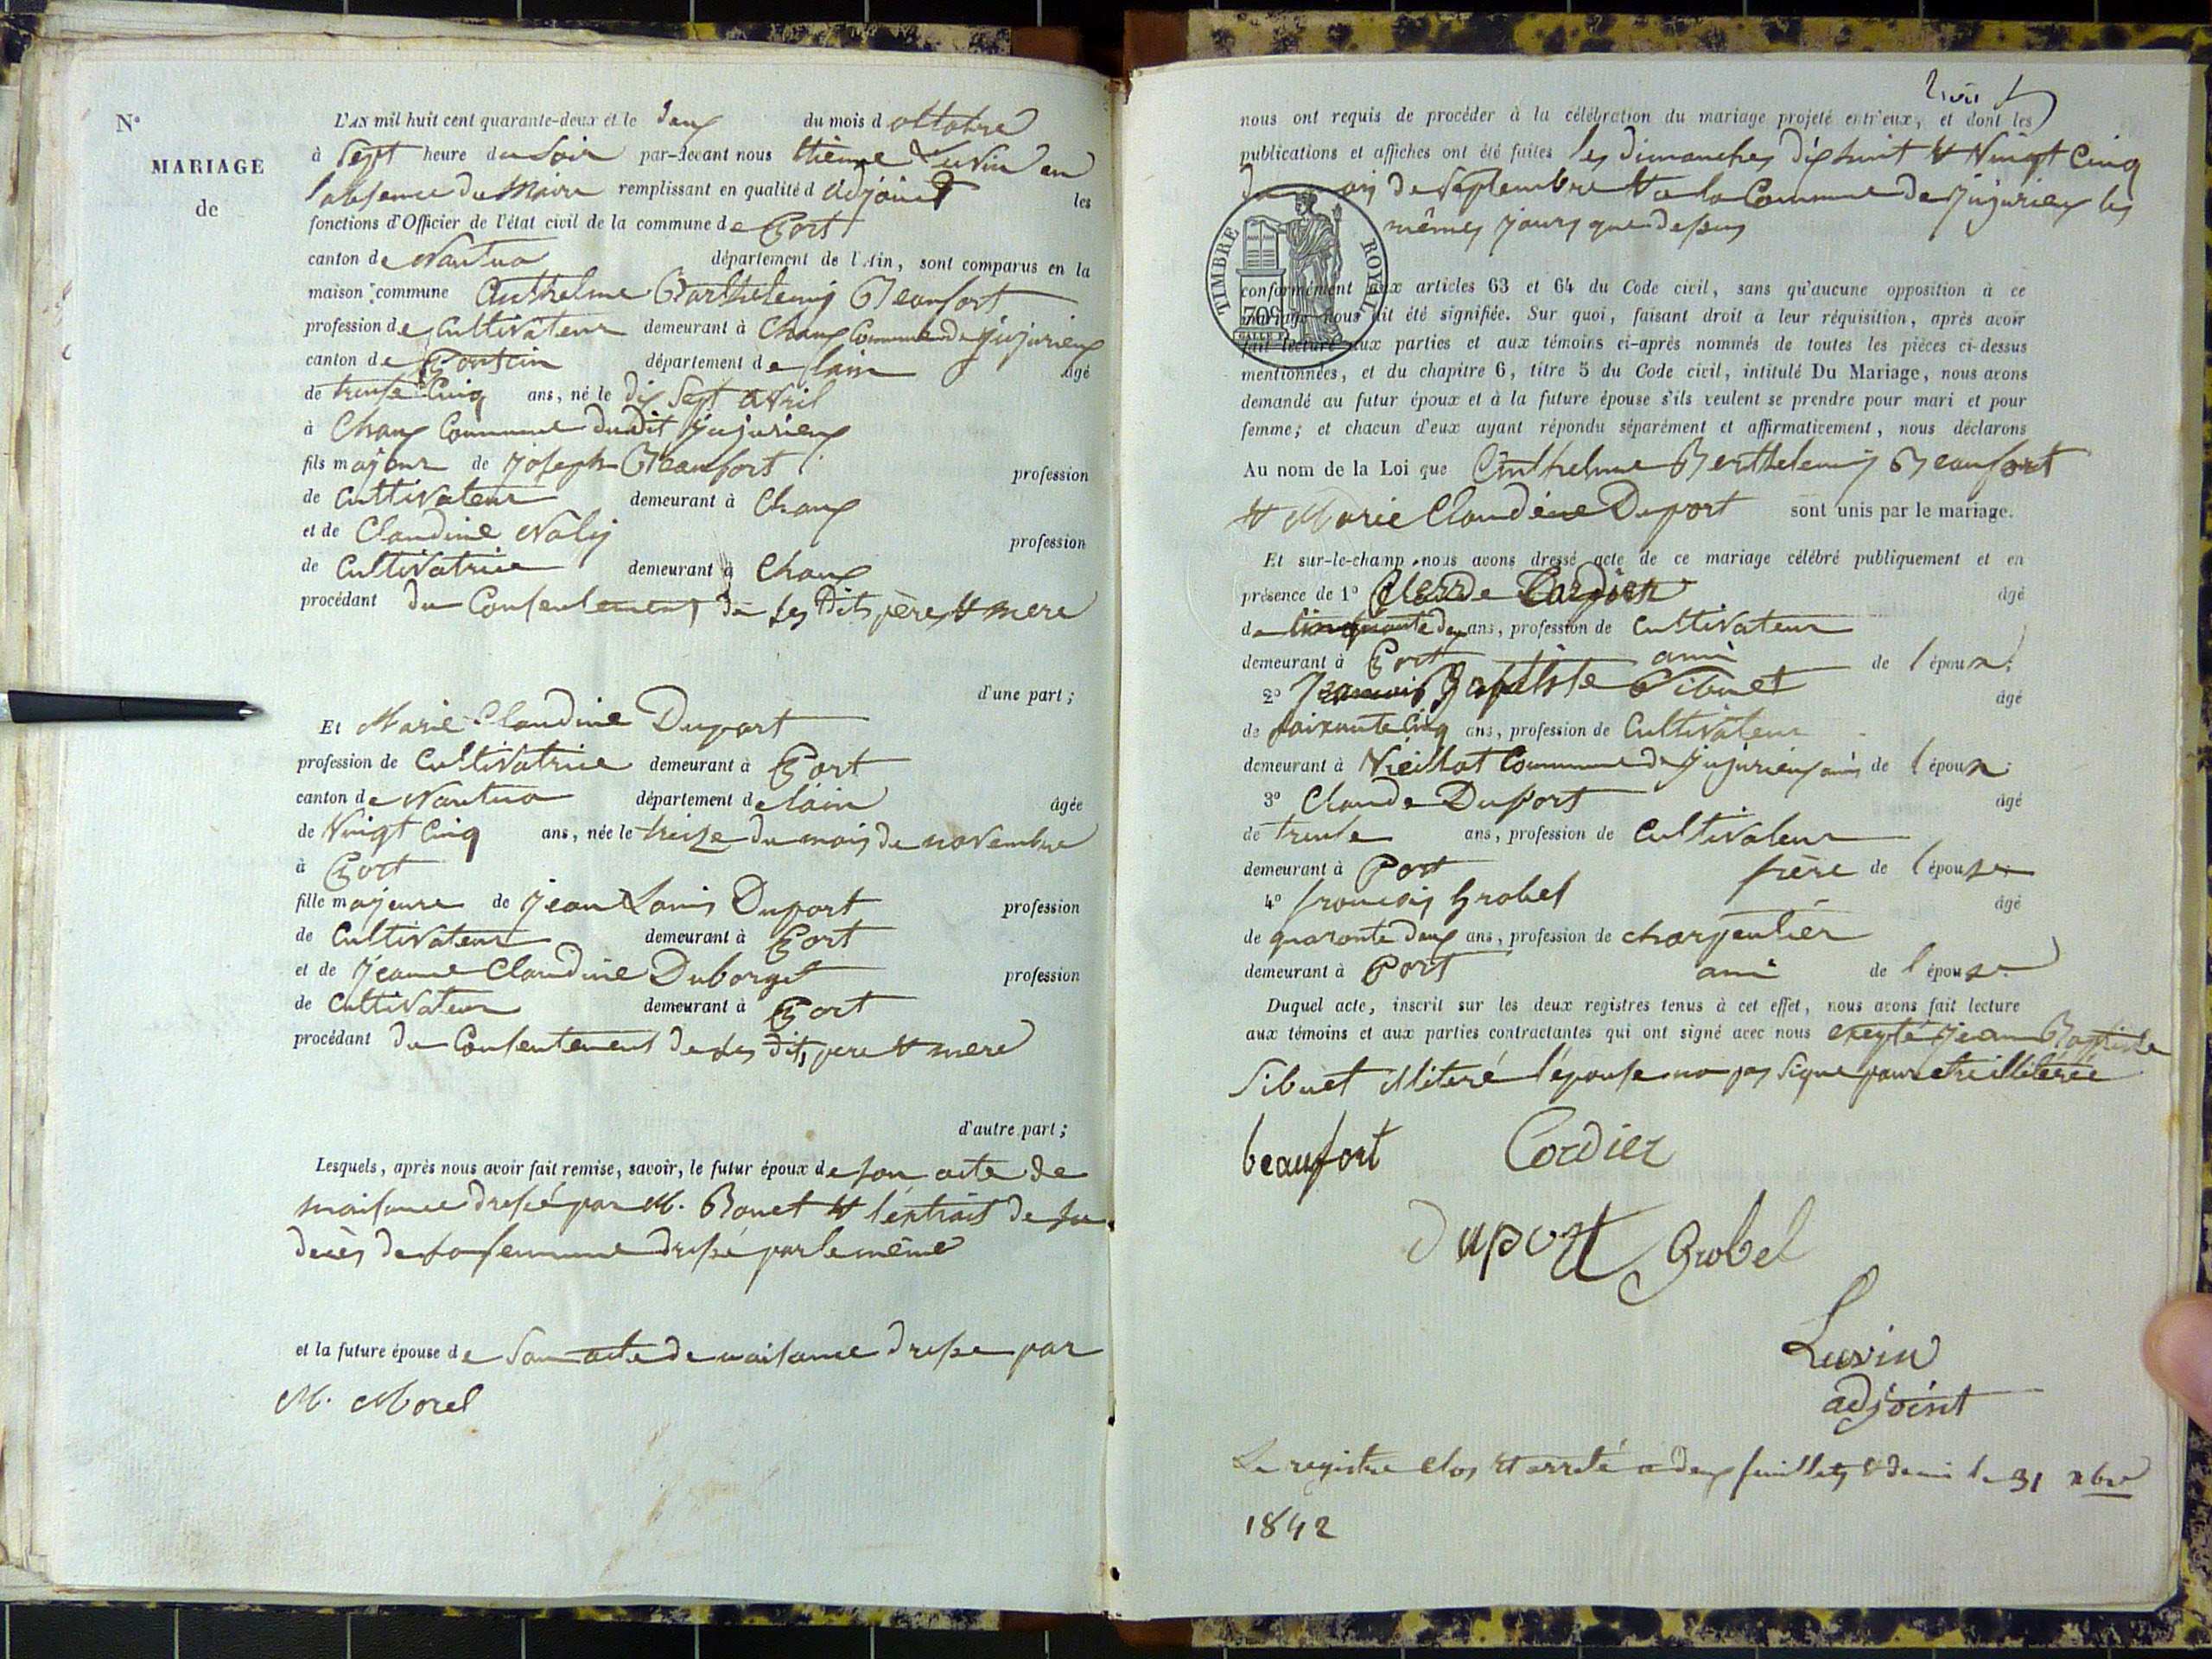 N°
MARIAGE
de
L'AN mil huit cent quarante-deux et le deux du mois d octobre
à Sept heure du Soir par-devant nous Etienne Luvin en
l'absence du Maire remplissant en qualité d adjoint les
fonctions d'Officier de l'état civil de la commune de Port
canton de Nantua département de l'Ain, sont comparus en la
maison commune Anthelme Barthelemy Beaufort
profession de Cultivateur demeurant à Chaux Commune de Jujurieux
canton de Poncin département de lain âgé
de trente Cinq ans, né le dix Sept avril
à Chaux Commune dudit Jujurieux
fils majeur de Joseph Beaufort profession
de Cultivateur demeurant à Chaux
et de Claudine Naly profession
de Cultivatrice demeurant à Chaux
procédant du Consentement de ses dits père et mere
d'une part;
Et Marie Claudine Duport
profession de Cultivatrice demeurant à Port
canton de Nantua département de lain âgée
de Vingt Cinq ans, née le treize du mois de novembre
à Port
fille majeure de Jean Louis Duport profession
de Cultivateur demeurant à Port
et de Jeanne Claudine Duborget profession
de Cultivateur demeurant à Port
procédant du Consentement de ses dits pere et mere
d'autre part;
Lesquels, après nous avoir fait remise, savoir, le futur époux de son acte de
naissance dressé par M. Bonet et l'extrait de
decès de sa femme dressé par le même
et la future épouse de Son acte de naissance dresse par
M. Morel
nous ont requis de procéder à la célébration du mariage projeté entr'eux, et dont les
publications et affiches ont été faites les dimanches dix huit et Vingt Cinq
du mois de Septembre et a la Commune de Jujurieux les
mêmes jours que dessus
TIMBRE ROYAL
70c
conformément aux articles 63 et 64 du Code civil, sans qu'aucune opposition à ce
mariage nous ait été signifiée. Sur quoi, faisant droit à leur réquisition, après avoir
fait lecture aux parties et aux témoins ci-après nommés de toutes les pièces ci-dessus
mentionnées, et du chapitre 6, titre 5 du Code civil, intitulé Du Mariage, nous avons
demandé au futur époux et à la future épouse s'ils veulent se prendre pour mari et pour
femme; et chacun d'eux ayant répondu séparément et affirmativement, nous déclarons
Au nom de la Loi que Anthelme Berthelemy Beaufort
et Marie Claudine Duport sont unis par le mariage.
Et sur-le-champ nous avons dressé acte de ce mariage célébré publiquement et en
présence de 1° Cordier âgé
de Cinquante deux ans, profession de Cultivateur
demeurant à Port ami de l'époux;
2° Baptiste Sibuet âgé
de Soixante Cinq ans, profession de Cultivateur
demeurant à Vieillat Commune de Jujurieux ami de l'époux;
3° Claude Duport âgé
de trente ans, profession de Cultivateur
demeurant à Port frère de l'épouse
4° francois Grobel âgé
de quarante deux ans, profession de charpentier
demeurant à Port ami de l'épouse
Duquel acte, inscrit sur les deux registres tenus à cet effet, nous avons fait lecture
aux témoins et aux parties contractantes qui ont signé avec nous exepté Jean Baptiste
Sibuet illiteré l'épouse na pas Signé pour etre illiterée
beaufort Cordier
Duport Grobel
Luvin
adjoint
Le registre clos et arreté a deux feuillets & demi le 31 xbre
1842